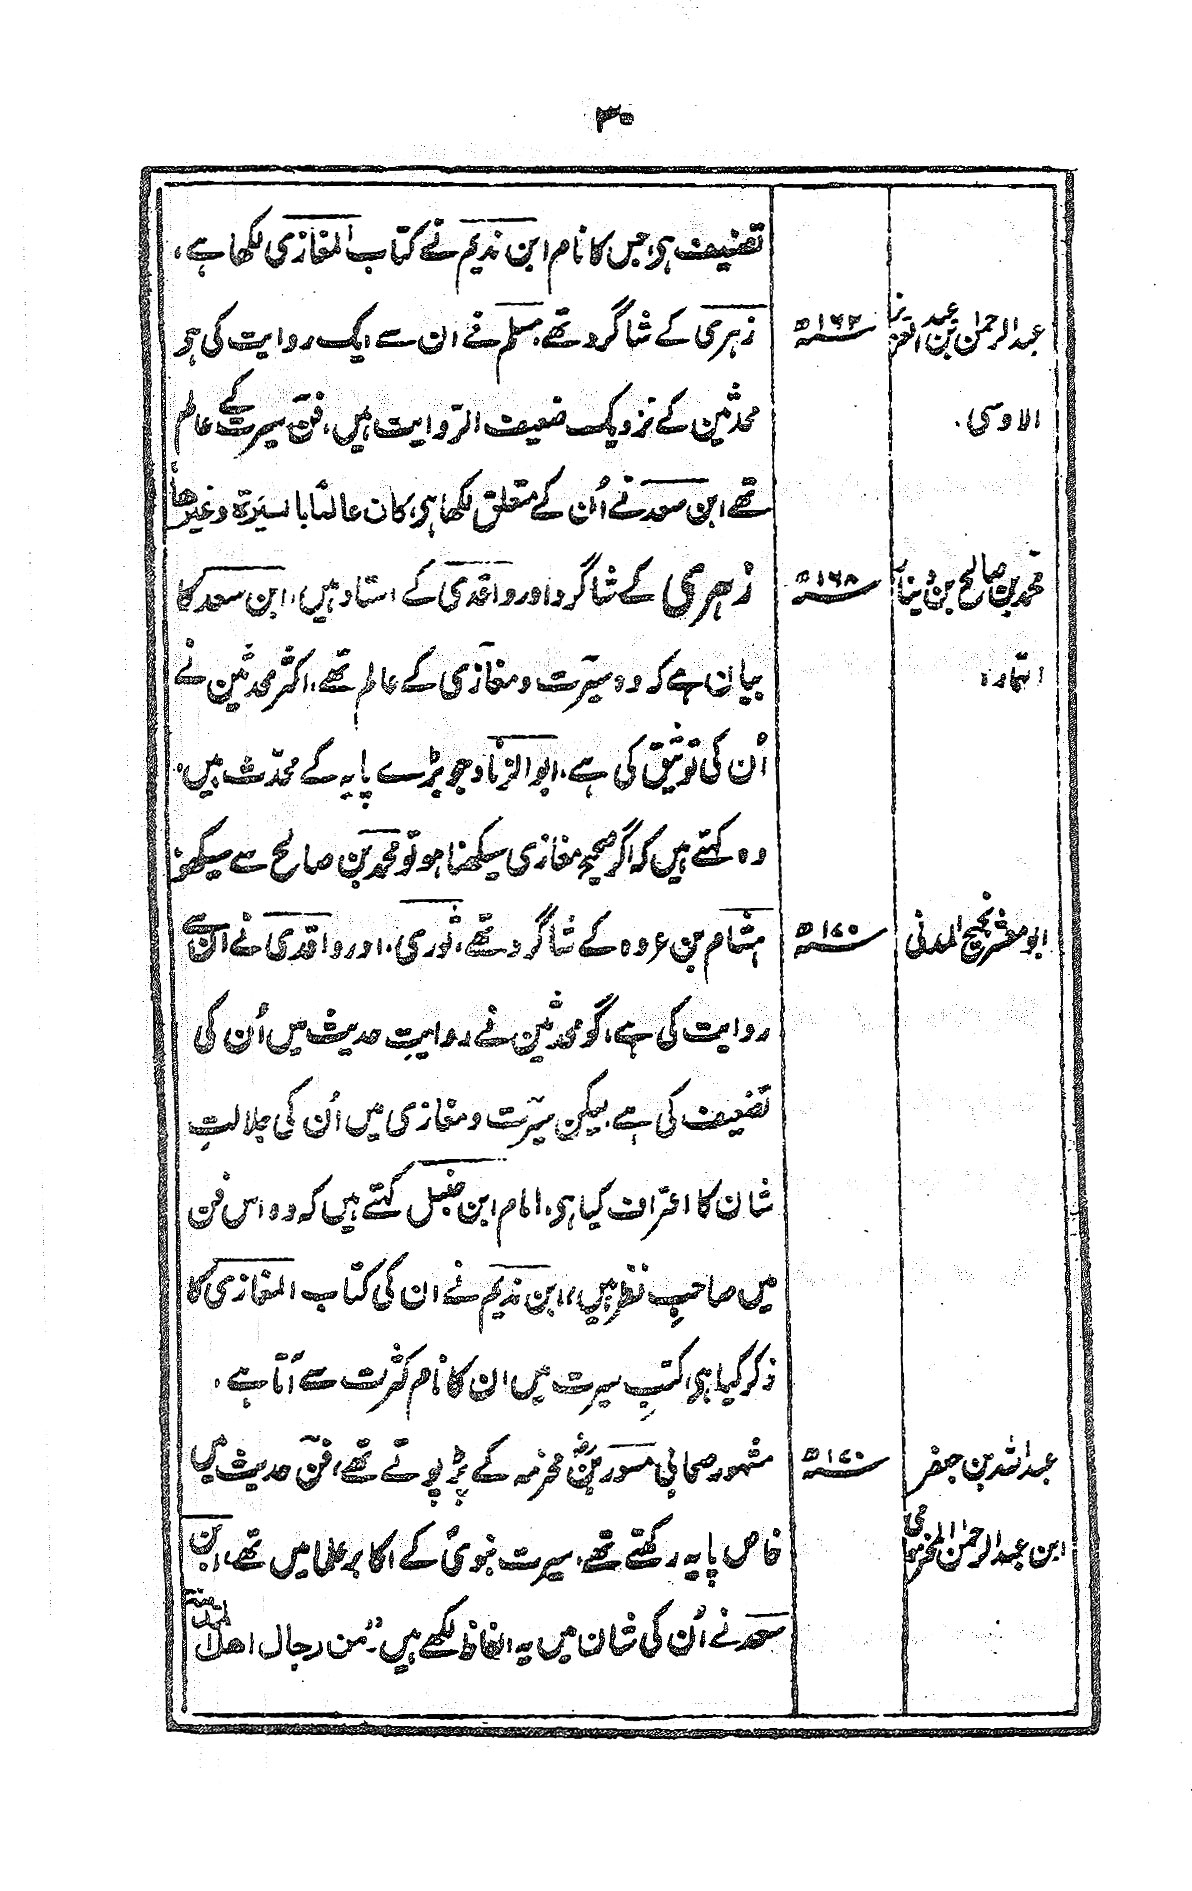 ۳۰
تصنیف ہی، جس کا نام ابن ندیم نے کتاب المغازی لکھا ہے،
عبدالرحمٰن بن عبد العزیز ۱۶۲ھ زہری کے شاگرد تھے، مسلم نے ان سے ایک روایت کی ہو
الاوسی۔ محدثین کے نزدیک ضعیف الروایت ہیں، فن سیرت کے عالم
تھے ابن سعد نے اُن کے متعلق لکھا ہی، کان عالمًا بالسیرۃ وغیرھا
محمد بن صالح بن دینار ۱۶۸ھ زہری کے شاگرد اور واقدی کے استاد ہیں، ابن سعد کا
التمار، بیان ہے کہ وہ سیرت و مغازی کے عالم تھے، اکثر محدثین نے
اُن کی توثیق کی ہے، ابو الزناد جو بڑے پایہ کے محدث ہیں،
وہ کہتے ہیں کہ اگر صحیح مغازی سیکھنا ہو تو محمد بن صالح سے سیکھو
ابو معشر نجیح المدنی ۱۷۰ھ ہشام بن عروہ کے شاگرد تھے، ثوری، اور واقدی نے ان سے
روایت کی ہے، گو محدثین نے روایتِ حدیث میں اُن کی
تضعیف کی ہے، لیکن سیرت و مغازی میں اُن کی جلالتِ
شان کا اعتراف کیا ہی، امام ابن حنبل کہتے ہیں کہ وہ اس فن
میں صاحبِ نظر ہیں، ابن ندیم نے ان کی کتاب المغازی کا
ذکر کیا ہی، کتبِ سیرت میں ان کا نام کثرت سے آتا ہے۔
عبد اللہ بن جعفر ۱۷۰ھ مشہور صحابی مسور بن مخرمہ کے پڑپوتے تھے، فن حدیث میں
ابن عبدالرحمٰن المخرمی خاص پایہ رکھتے تھے، سیرت نبوی کے اکابر علما میں تھے، ابن
سعد نے اُن کی شان میں یہ الفاظ لکھے ہیں۔ "من رجال اھل المدینۃ